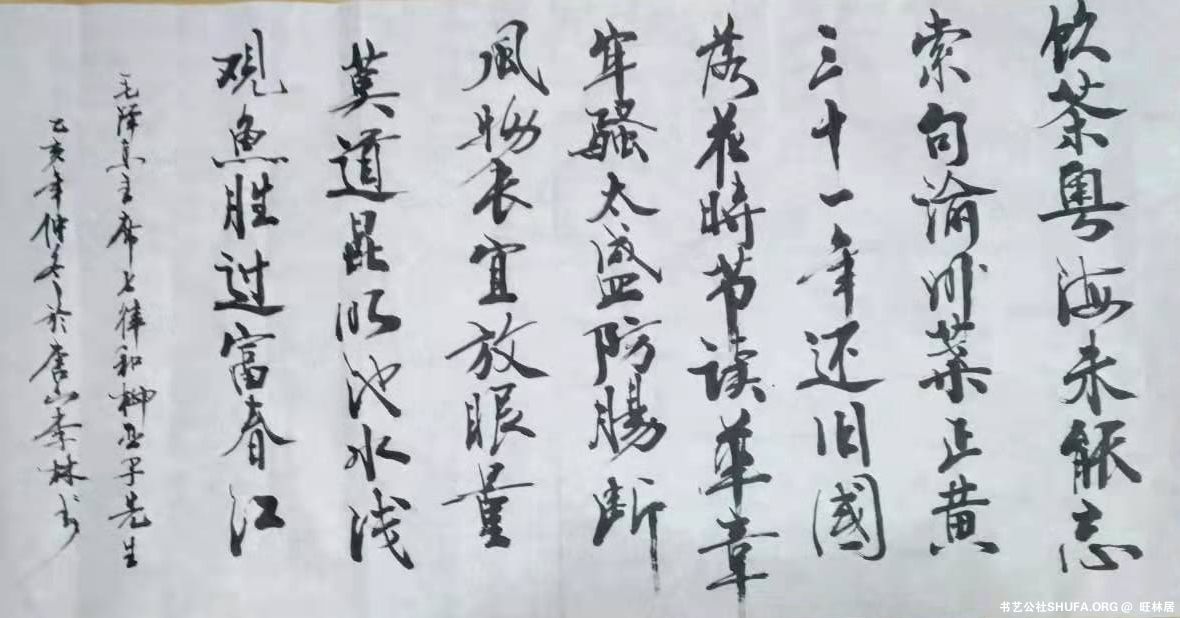 饮茶粤海未能忘
索句渝州葉正黄
三十一年还旧國
落花時节读華章
牢騷太盛防腸断
風物长宜放眼量
莫道昆明池水浅
观魚胜过富春江
毛泽东主席七律和柳亚子先生
乙亥年仲冬於唐山李林书
书艺公社SHUFA.ORG @ 旺林居